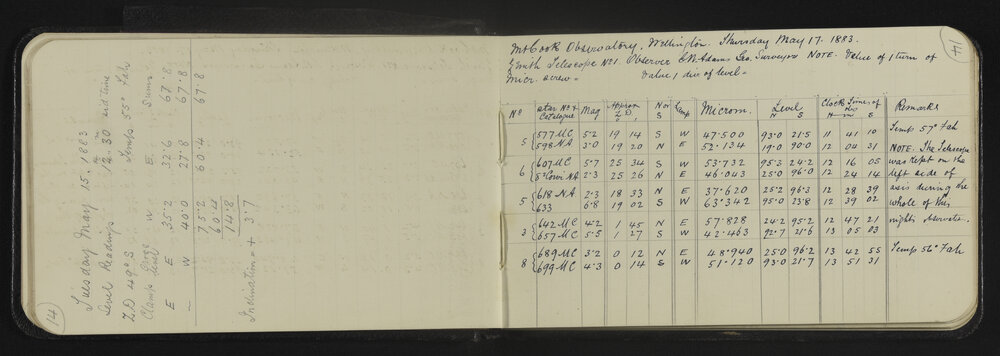 14
Tuesday May 15. 1883
Level Readings 12 30 sid time
Z.D 49° S Temp 55° Fah
Clamp W E. Sums
E 35.2 32.6 67.8
W 40.0 27.8 67.8
75.2 60.4 67.8
60.4
14.8
Inclination = + 3.7
141
Mt Cook Observatory, Wellington. Thursday May 17. 1883.
Zenith Telescope No 1. Observer C.W. Adams Geo. Surveyor NOTE. Value of 1 turn of
Micr. screw = Value 1 div of level =
No Star No & Catalogue Mag Approx Z.D. N or S Lamp Microm. Level N S Clock Time of Obs H m S Remarks
5 577 MC 5.2 19 14 S W 47.500 93.0 21.5 11 41 10 Temp 57° Fah
598 NA 3.0 19 20 N E 52.134 19.0 90.0 12 04 31 NOTE. The Telescope
6 607 MC 5.7 25 34 S W 53.732 95.3 24.2 12 16 05 was kept on the
δ Corvi NA 2.3 25 26 N E 46.043 25.0 96.0 12 24 14 left side of
5 618 NA 2.3 18 33 N E 37.620 25.2 96.3 12 28 39 axis during the
633 6.8 19 02 S W 63.342 95.0 23.8 12 39 02 whole of this
3 642 MC 4.2 1 45 N E 57.828 24.2 95.2 12 47 21 nights observatns.
657 MC 5.5 1 27 S W 42.463 92.7 21.6 13 05 03
8 689 MC 3.2 0 12 N E 48.940 25.0 96.2 13 42 55 Temp 56° Fah
699 MC 4.3 0 14 S W 51.120 93.0 21.7 13 51 31